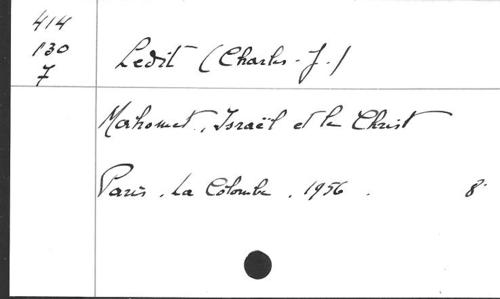 414
130
7
Ledit (Charles-J.)
Mahomet, Israël et le Christ
Paris, La Colombe, 1956. 8°